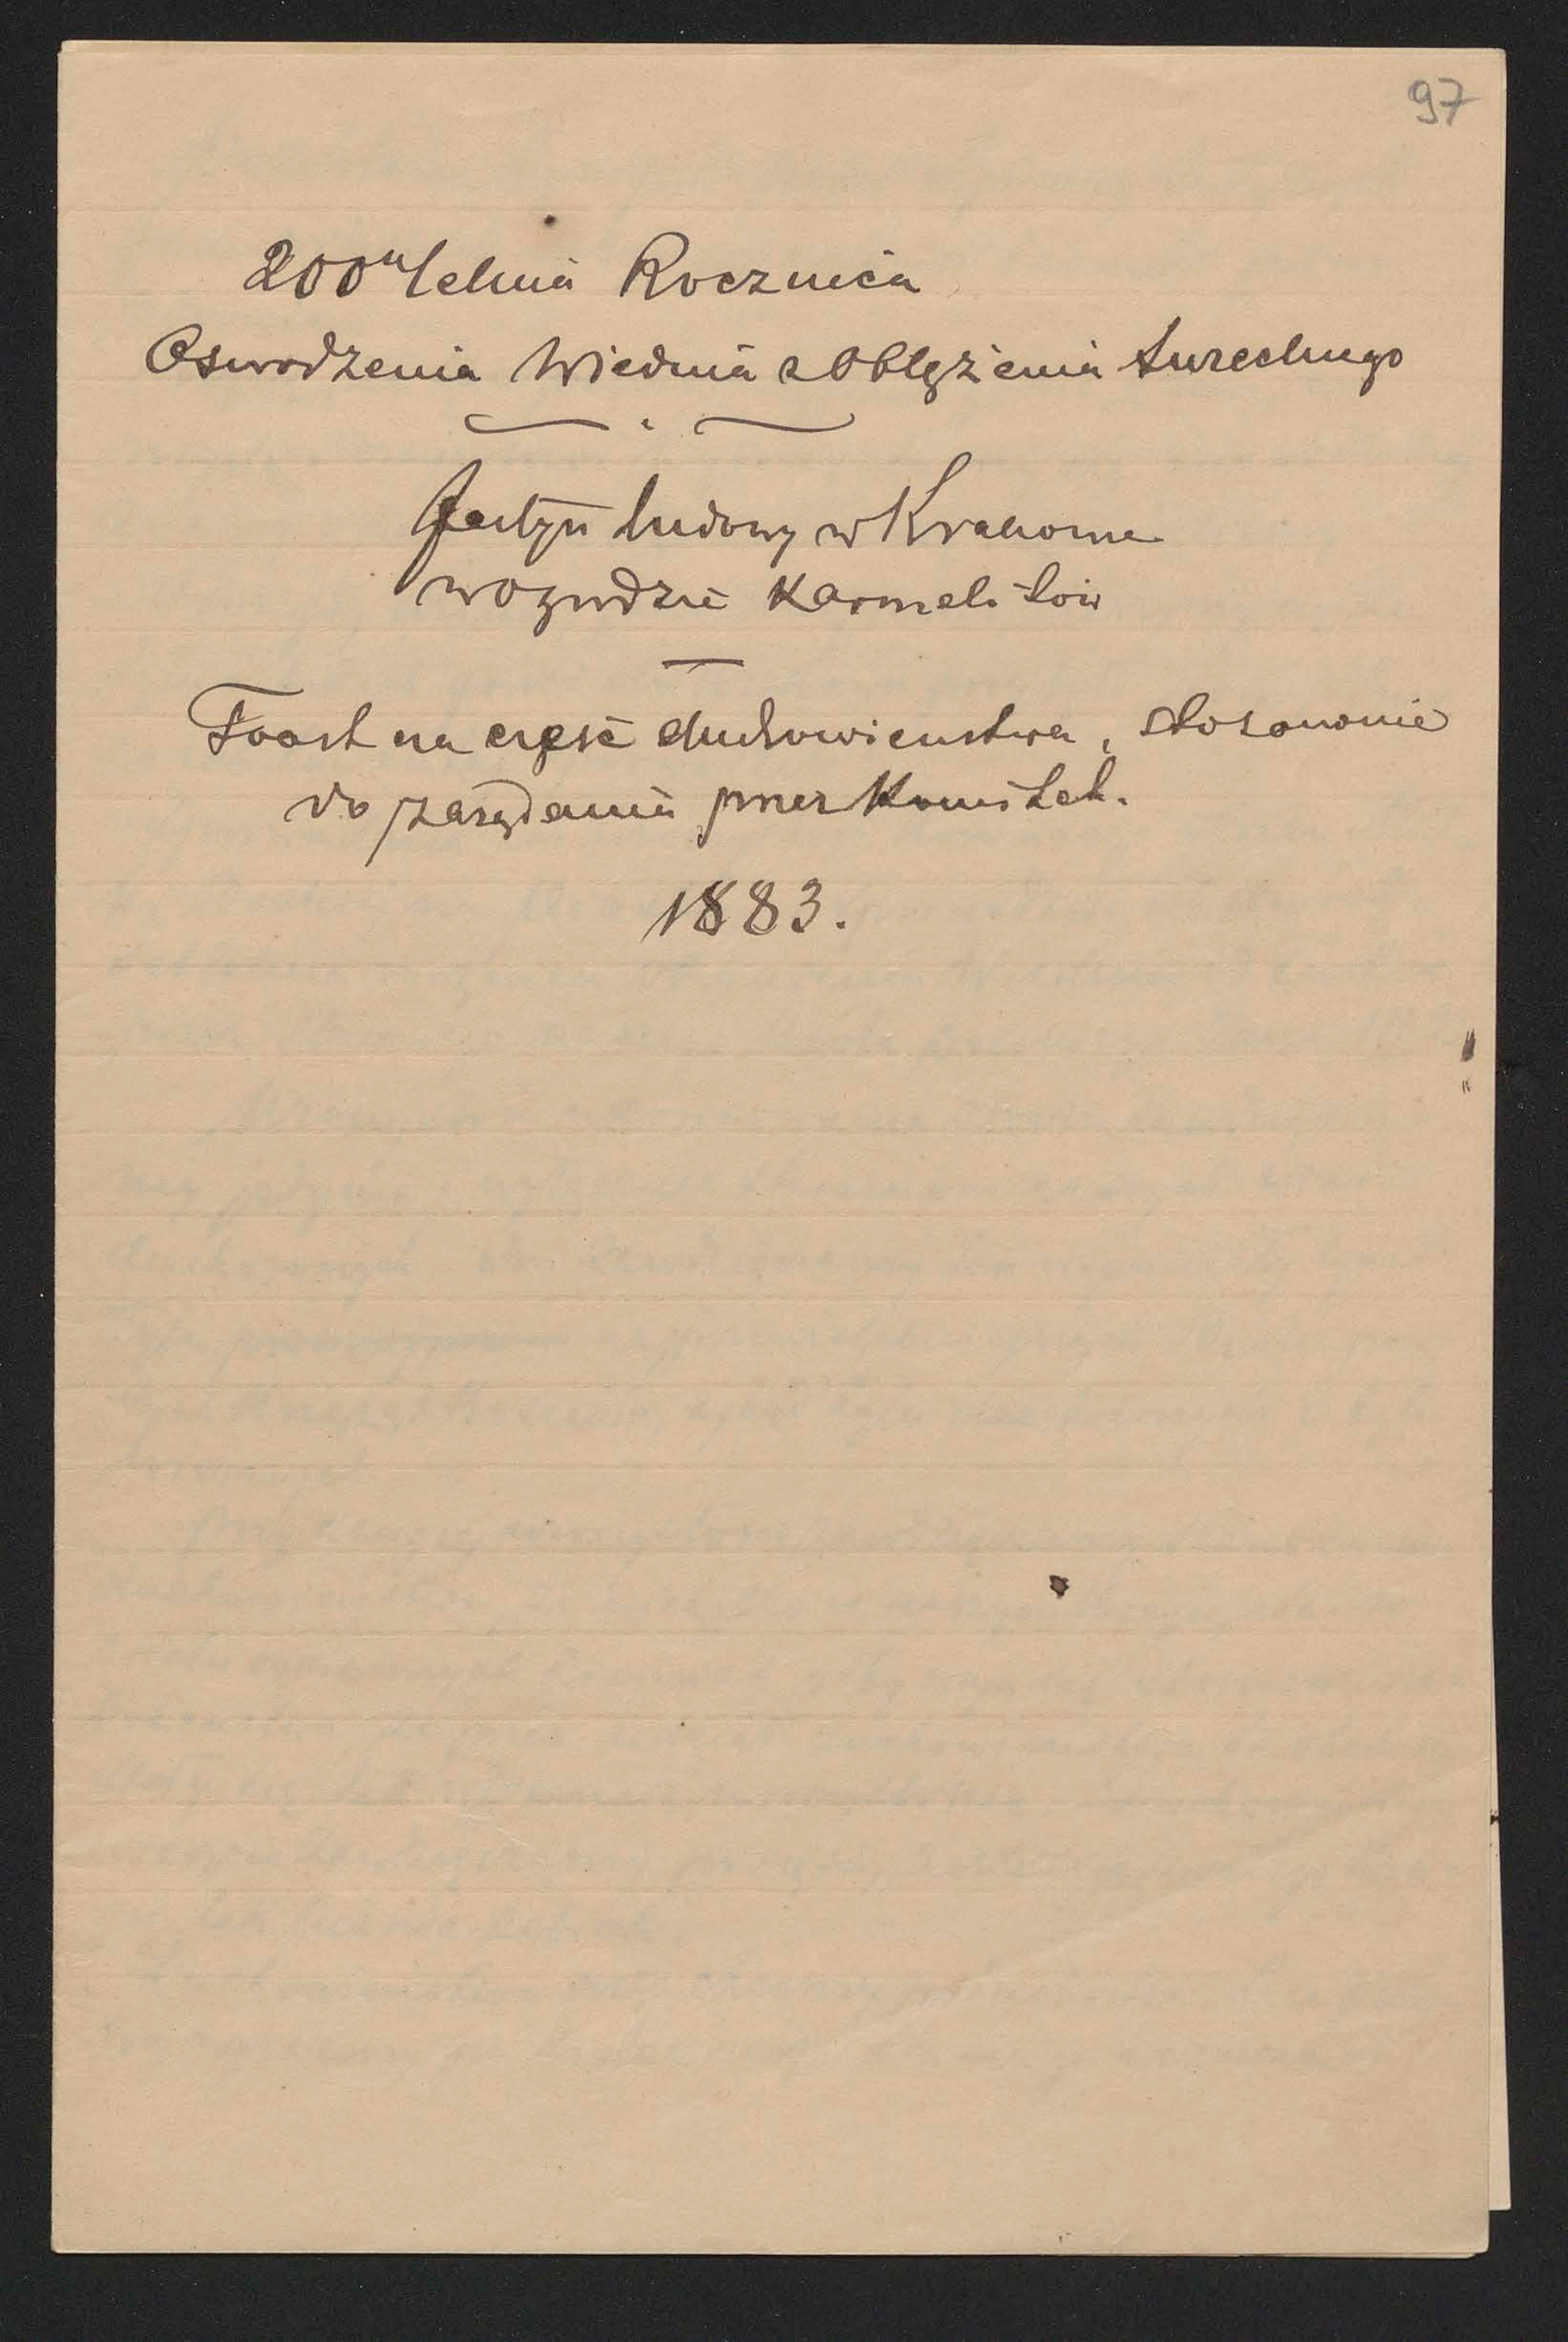 97
200" letnia Rocznica
Oswodzenia Wiednia z Oblężenia tureckiego
Festyn ludowy w Krakowie
w Ogrodzie Karmelitów
Toast na cześć duchowieństwa, stosownie
do zażądania przez Komitet.
1883.